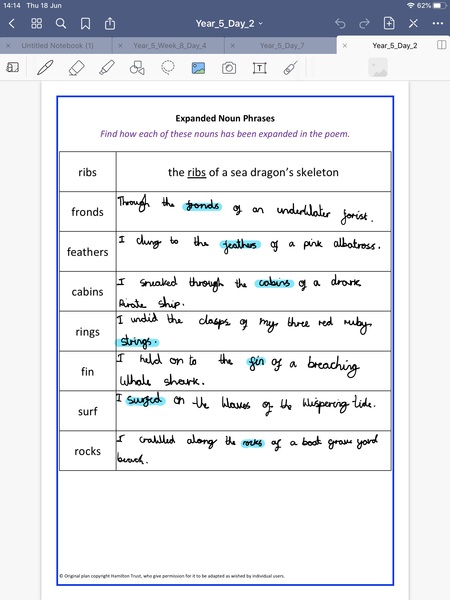 14:14 Thu 18 Jun
62%
Year_5_Day_2
Untitled Notebook (1)
Year_5_Week_8_Day_4
Year_5_Day_7
Year_5_Day_2
Expanded Noun Phrases
Find how each of these nouns has been expanded in the poem.
ribs
the ribs of a sea dragon's skeleton
fronds
Through the fronds of an underwater forist.
feathers
I clung to the feathers of a pink albatross.
cabins
I sneaked through the cabins of a drank
Pirate ship.
rings
I undid the clasps of my three red ruby
strings.
fin
I held on to the fin of a breaching
Whale shark.
surf
I surfed on the waves of the whispering tide.
rocks
I crawled along the rocks of a boat grave yard
beach.
© Original plan copyright Hamilton Trust, who give permission for it to be adapted as wished by individual users.